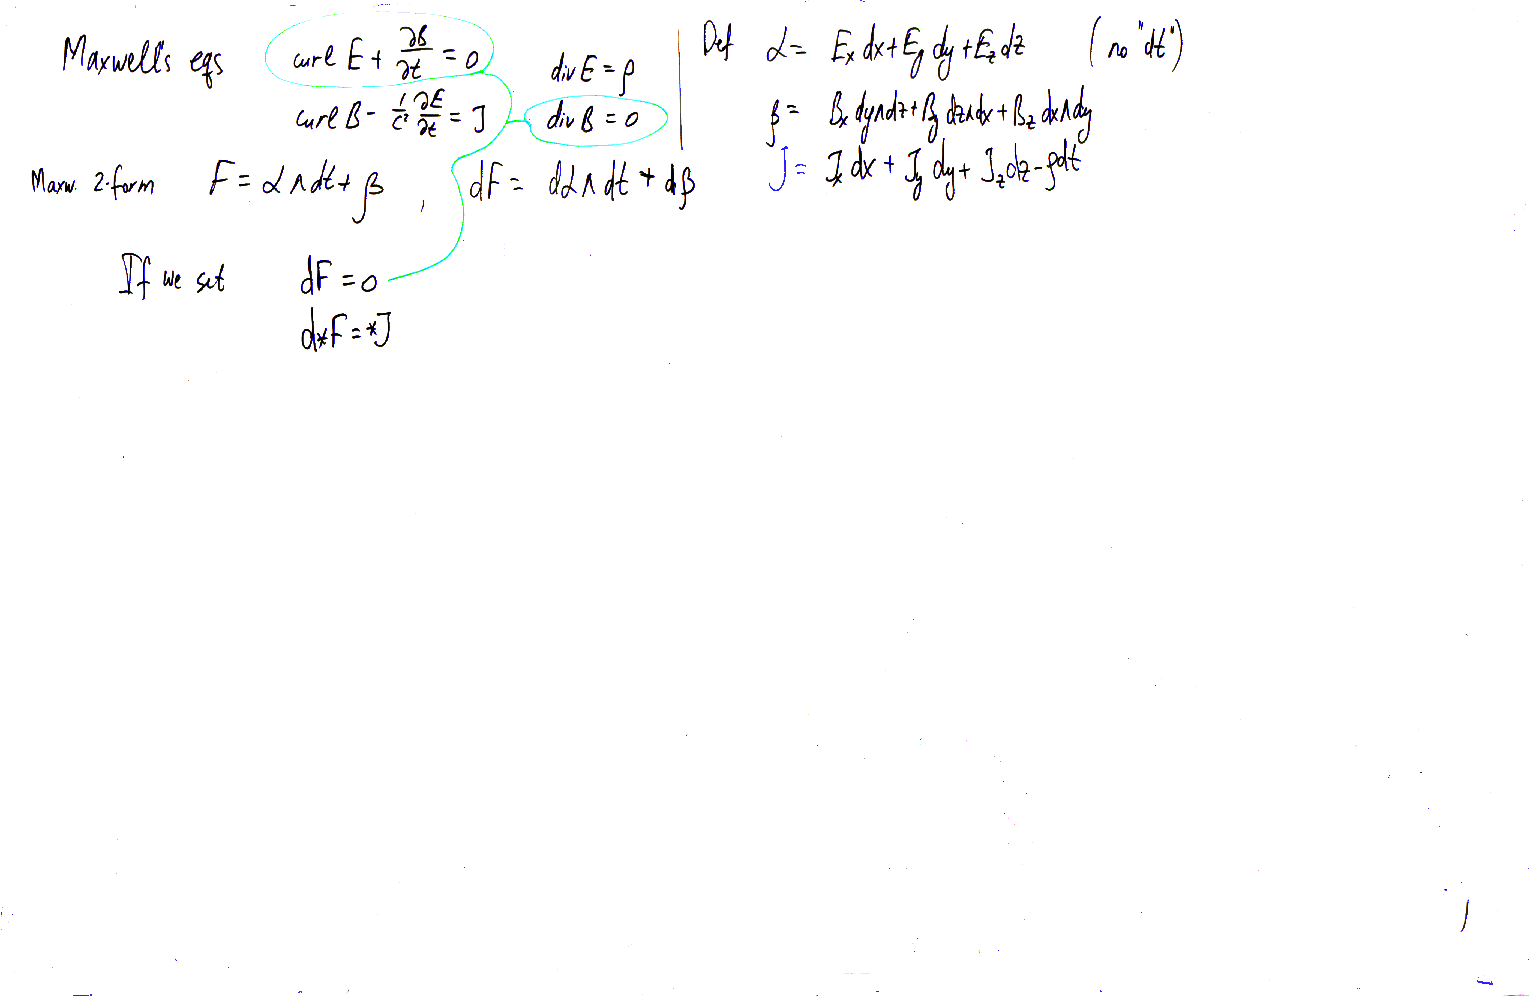 Maxwell's eqs curl E + ∂B/∂t = 0 div E = ρ
curl B - 1/c² ∂E/∂t = J div B = 0
Def α = Ex dx + Ey dy + Ez dz (no "dt")
β = Bx dy∧dz + By dz∧dx + Bz dx∧dy
J = Jx dx + Jy dy + Jz dz - ρdt
Maxw. 2-form F = α∧dt + β , dF = dα∧dt + dβ
If we set dF = 0
d*F = *J